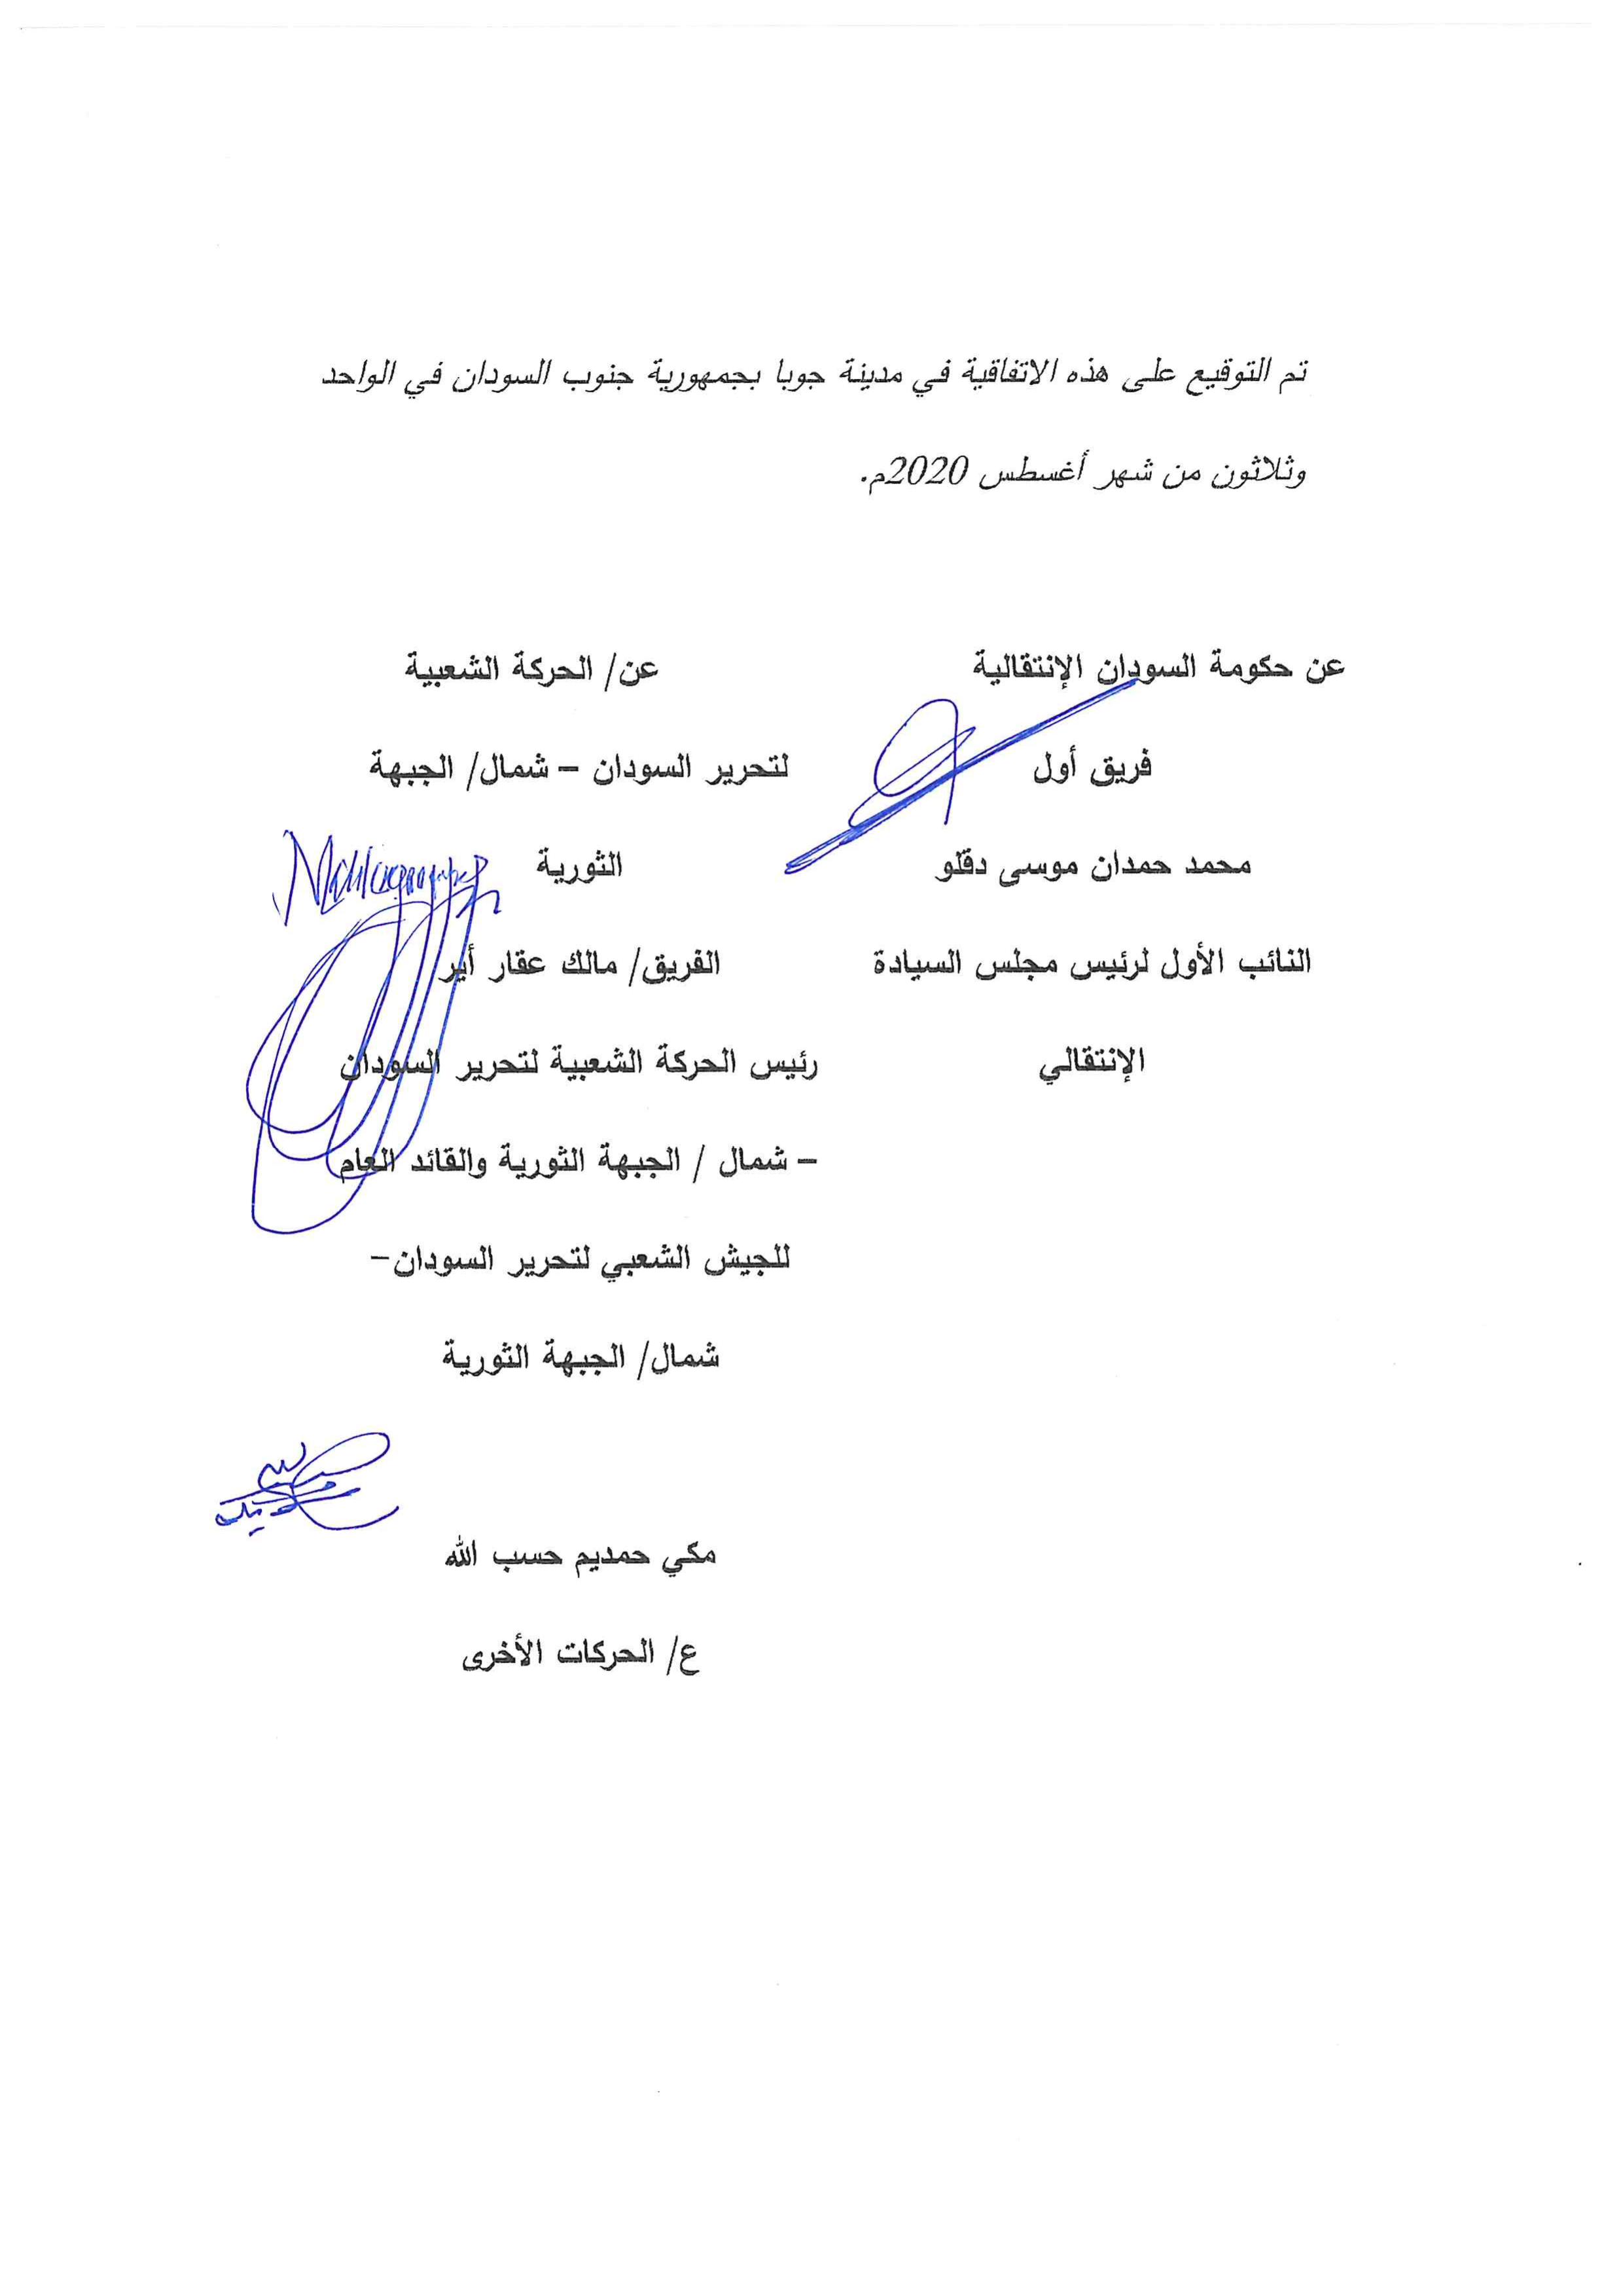 تم التوقيع على هذه الاتفاقية في مدينة جوبا بجمهورية جنوب السودان في الواحد
وثلاثون من شهر أغسطس 2020م.
عن حكومة السودان الإنتقالية
فريق أول
محمد حمدان موسى دقلو
النائب الأول لرئيس مجلس السيادة
الإنتقالي
عن/ الحركة الشعبية
لتحرير السودان – شمال/ الجبهة
الثورية
الفريق/ مالك عقار أير
رئيس الحركة الشعبية لتحرير السودان
– شمال / الجبهة الثورية والقائد العام
للجيش الشعبي لتحرير السودان–
شمال/ الجبهة الثورية
مكي حمديم حسب الله
ع/ الحركات الأخرى